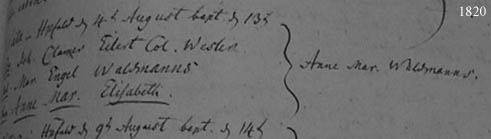 1820
Unfeld d 4t August bapt. d 13t
Joh. Clamer Eilert Col. Westen
Mar. Engel Waldmanns
Anne Mar. Elisabeth.
Anne Mar. Waldmanns.
Unfeld d 9t August bapt. d 14t